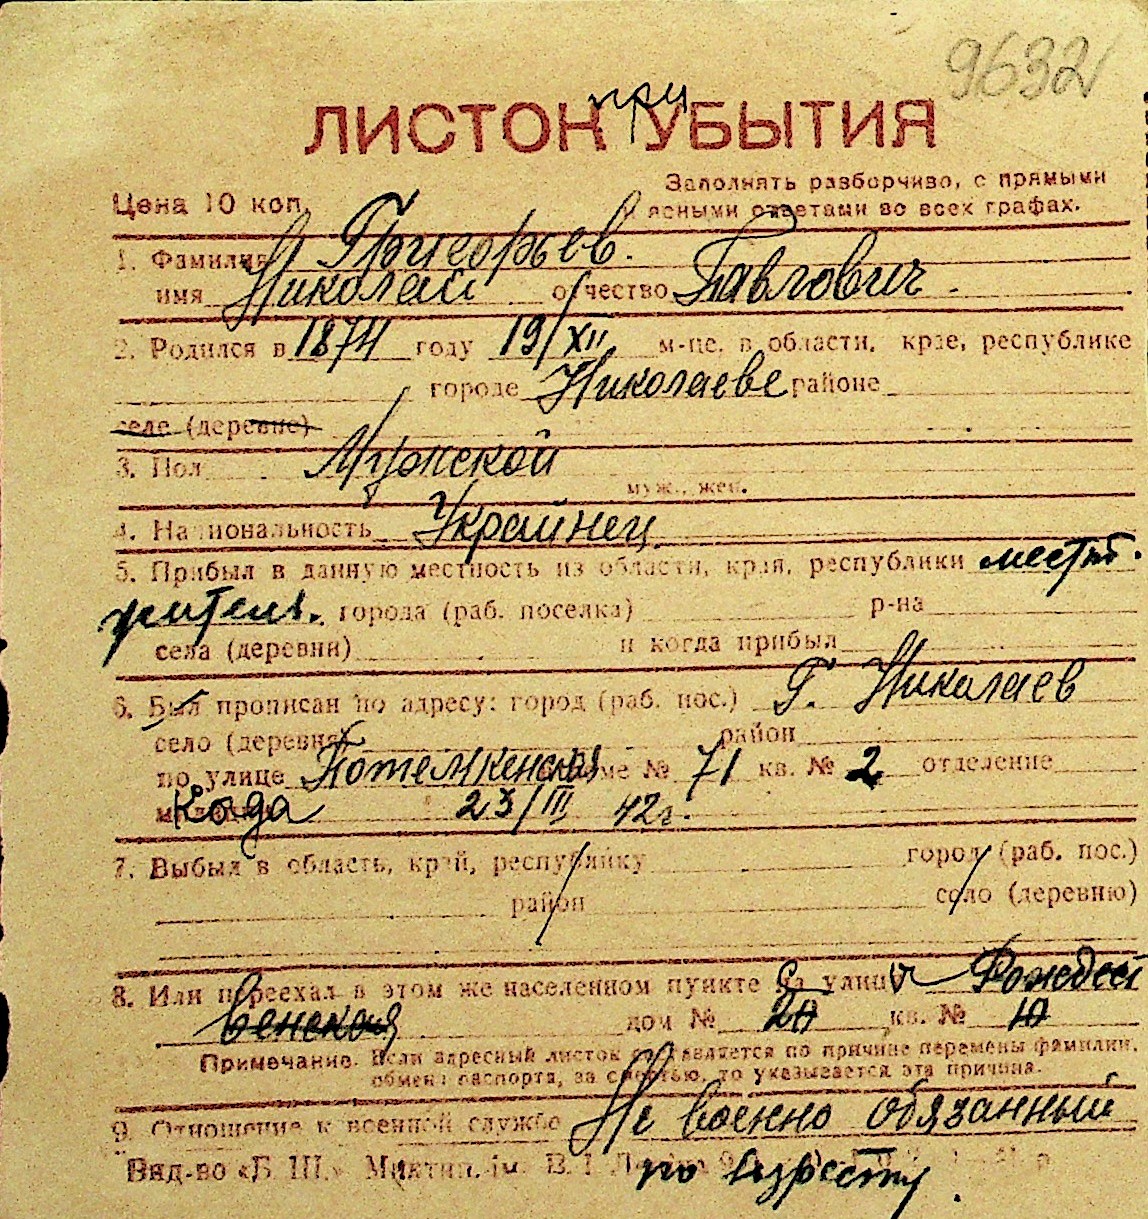 9632
при
ЛИСТОК УБЫТИЯ
Цена 10 коп.
Заполнять разборчиво, с прямыми
и ясными ответами во всех графах.
1. Фамилия Григорьев.
имя Николай отчество Павлович.
2. Родился в 1874 году 19/XII м-це, в области, крае, республике
городе Николаеве районе
селе (деревне)
3. Пол Мужской
муж., жен.
4. Национальность Украйнец
5. Прибыл в данную местность из области, края, республики местн.
житель. города (раб. поселка) р-на
села (деревни) и когда прибыл
6. Был прописан по адресу: город (раб. пос.) г. Николаев
село (деревня) район
по улице Потемкенская доме № 71 кв. № 2 отделение
Когда 23/III 42г.
7. Выбыл в область, край, республику город (раб. пос.)
район село (деревню)
8. Или переехал в этом же населенном пункте с улицы Рождест
венская дом № 20 кв. № 10
Примечание. Если адресный листок составляется по причине перемены фамилии,
обмена паспорта, за смертью, то указывается эта причина.
9. Отношение к военной службе Не военно обязанный
по возрасту.
Вид-во «Б. Ш.» Микт